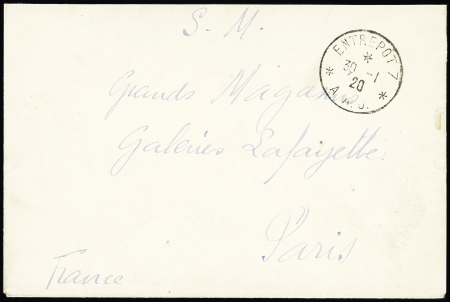 S. M.
ENTREPOT 7
30 -1
20
Grands Magasins
Galeries Lafayette
Paris
France